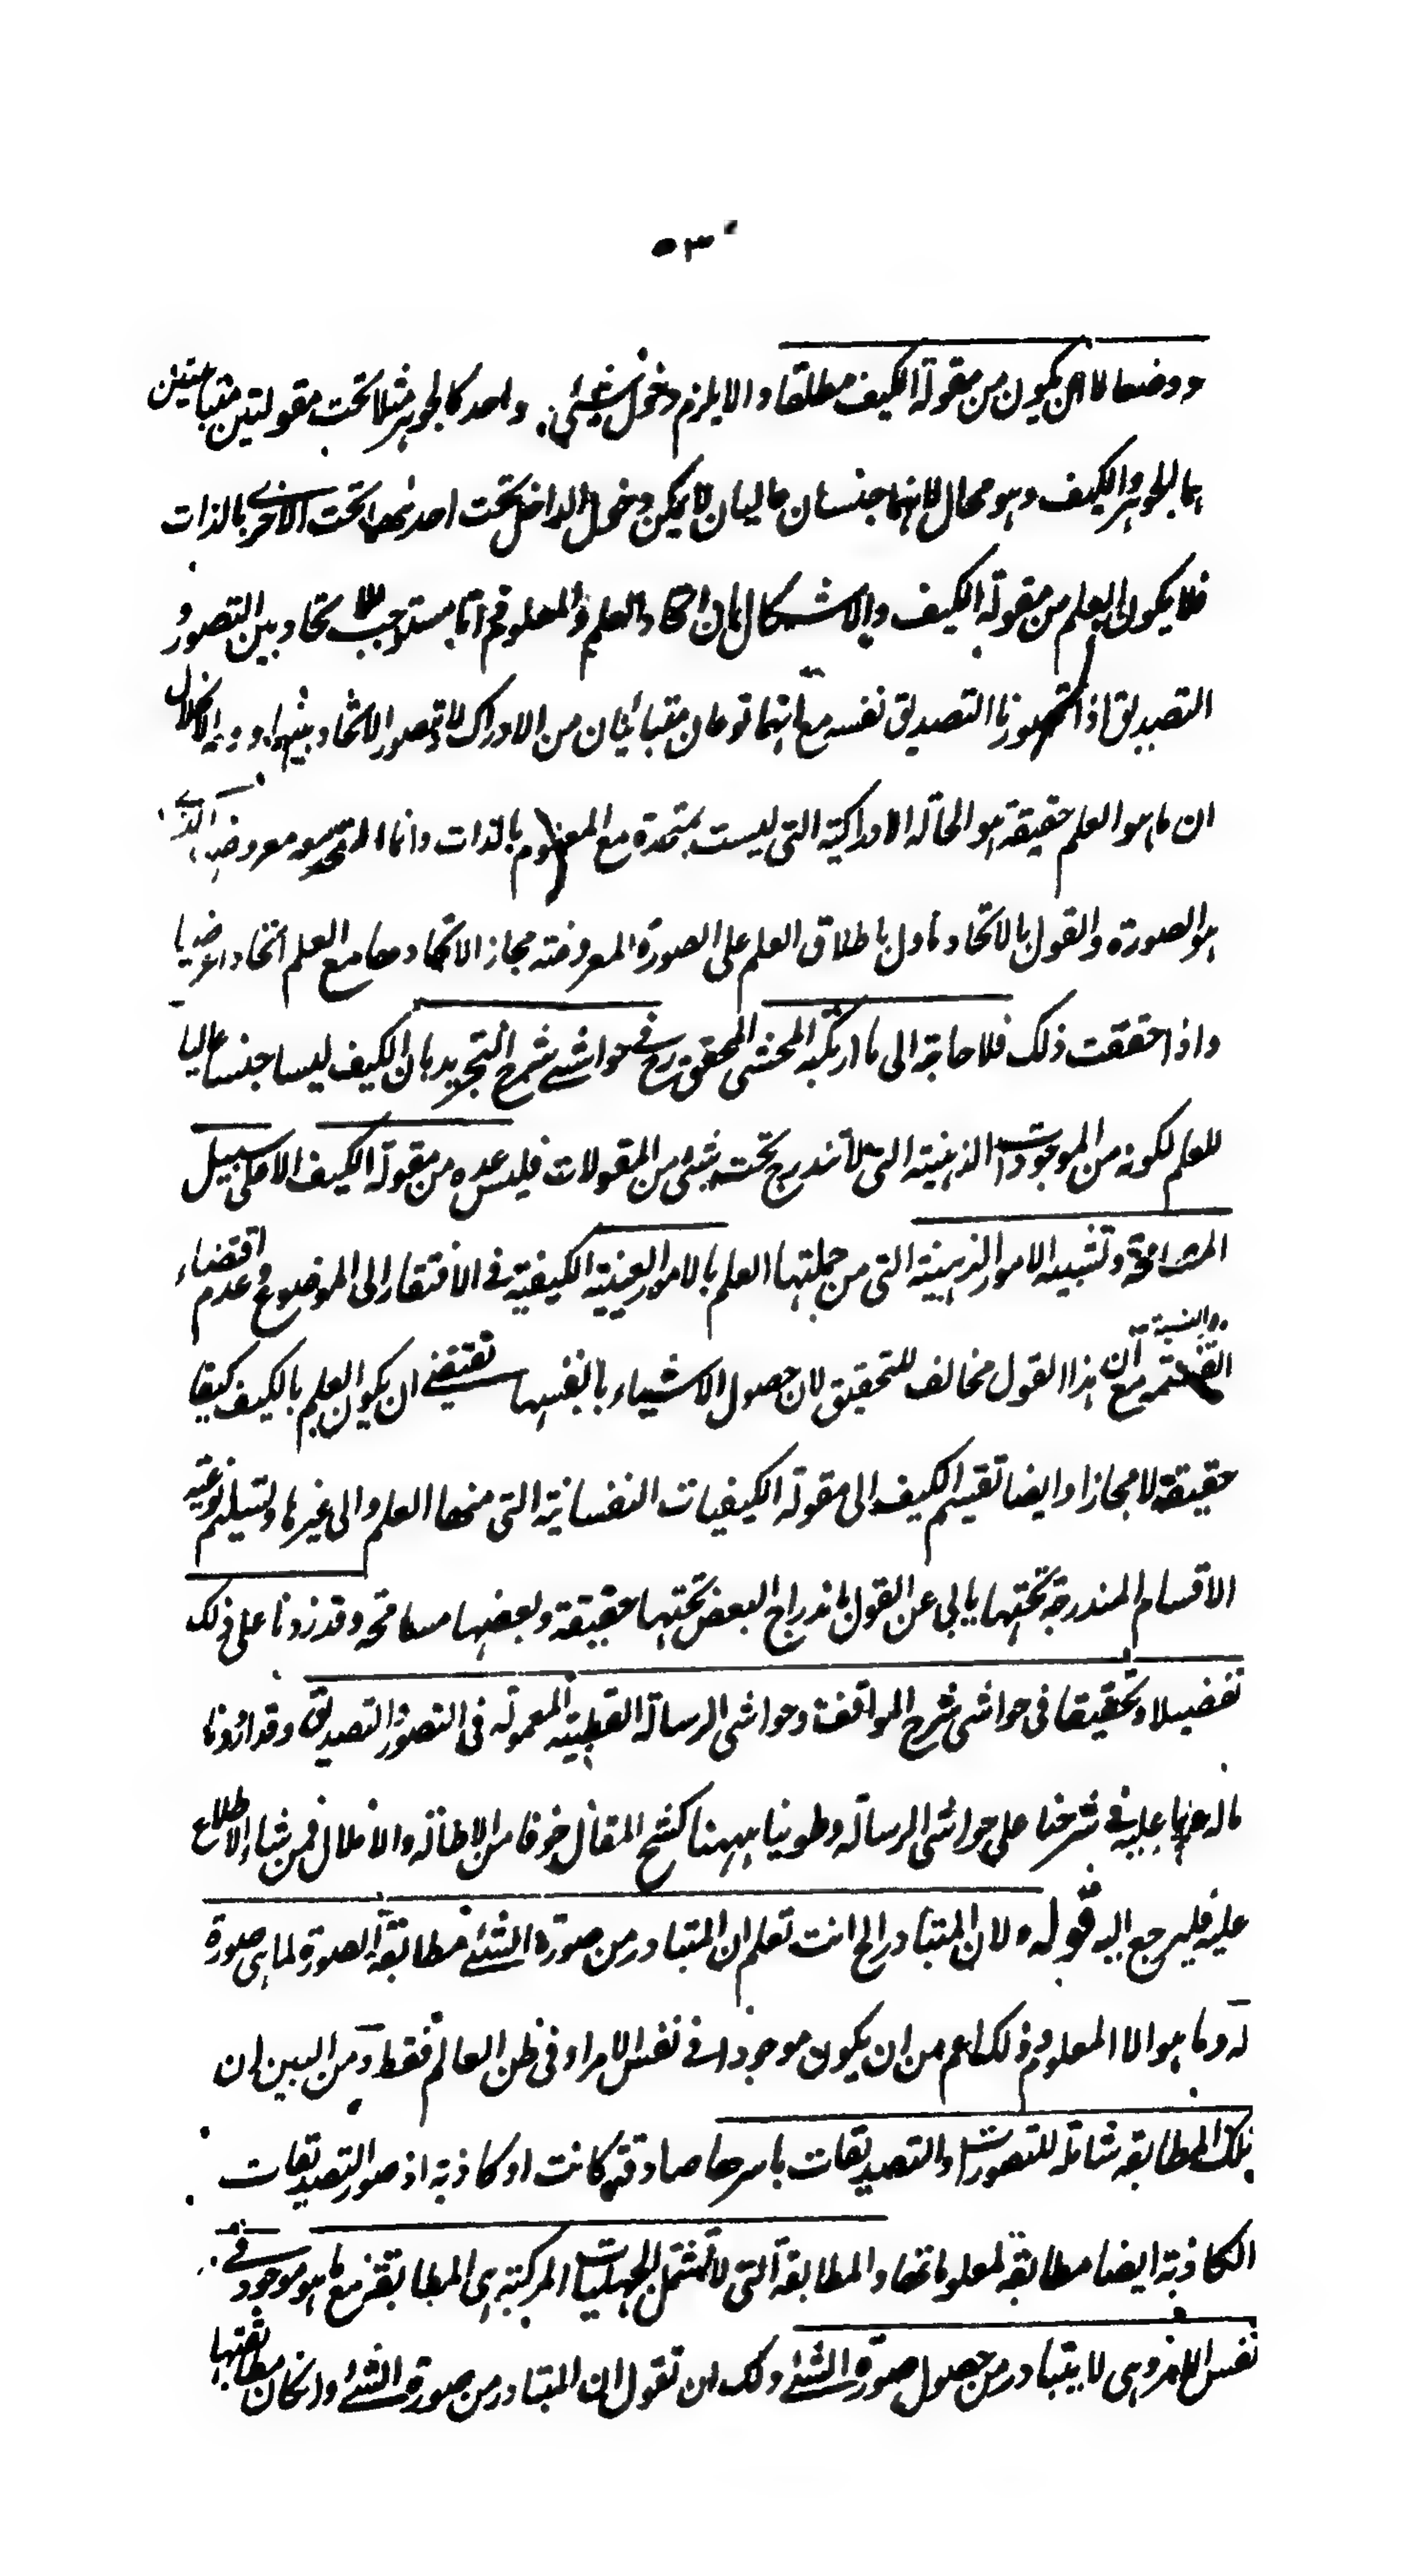 ٥٣
ووضعا لا ان يكون من مقولة الكيف مطلقا والا يلزم دخول شئ واحد كالجوهر مثلا تحت مقولتين متباينتين
هما الجوهر والكيف وهو محال لانهما جنسان عاليان لا يمكن دخول الداخل تحت احدهما تحت الاخرى بالذات
فلا يكون العلم من مقولة الكيف والاشكال بان اتحاد العلم والمعلوم اتا يستوجب اتحاد بين التصور و
التصديق اذا تصورنا التصديق نفسه مع انهما نوعان متبائنان من الادراك لا يتصور الاتحاد بينهما ووجه الانحلال
ان ما هو العلم حقيقة هو الحالة الادراكية التى ليست بمتحدة مع المعلوم بالذات وانما المتحد معه معروضها الذى
هو الصورة والقول بالاتحاد ماول باطلاق العلم على الصورة المعروضة مجاز الاتحادها مع العلم اتحادا عرضيا
واذا حققت ذلك فلا حاجة الى ما ارتكبه المحشى المحقق رح فى حواشى شرح التجريد بان الكيف ليسا جنسا عاليا
للعلم لكونه من الموجودات الذهنية التى لا تندرج تحت شئ من المقولات فليس عده من مقولة الكيف الا على سبيل
المسامحة وتشبيه الامور الذهنية التى من جملتها العلم بالامور العينية الكيفية فى الافتقار الى الموضوع وعدم اقتضاء
القسمة والنسبة مع ان هذا القول مخالف للتحقيق لان حصول الاشياء بانفسها تقتضى ان يكون العلم بالكيف كيفا
حقيقة لا مجازا وايضا تقسيم الكيف الى مقولة الكيفيات النفسانية التى منها العلم والى غيرها وتسليم نوعية
الاقسام المندرجة تحتها يابى عن القول باندراج البعض تحتها حقيقة وبعضها مسامحة وقد زدنا على ذلك
تفصيلا وتحقيقا فى حواشى شرح المواقف وحواشى الرسالة القطبية المعمولة فى التصور والتصديق وقد اوردنا
ما له وما عليه فى شرحنا على حواشى الرسالة وطوينا ههنا كشح المقال خوفا من الاطالة والاملال فمن شاء الاطلاع
عليه فليرجع اليه قوله لان المتبادر الخ انت تعلم ان المتبادر من صورة الشئ مطابقة الصورة لما هى صورة
له وما هو الا المعلوم وذلك اعم من ان يكون موجودا فى نفس الامر او فى ظن العالم فقط ومن البين ان
تلك المطابقة شاملة للتصورات والتصديقات باسرها صادقة كانت او كاذبة اذ صور التصديقات
الكاذبة ايضا مطابقة لمعلوماتها والمطابقة التى لا تشتمل الجهليات المركبة هى المطابقة مع ما هو موجود فى
نفس الامر وهى لا يتبادر من حصول صورة الشئ ولك ان تقول ان المتبادر من صورة الشئ وان كان مطابقتها